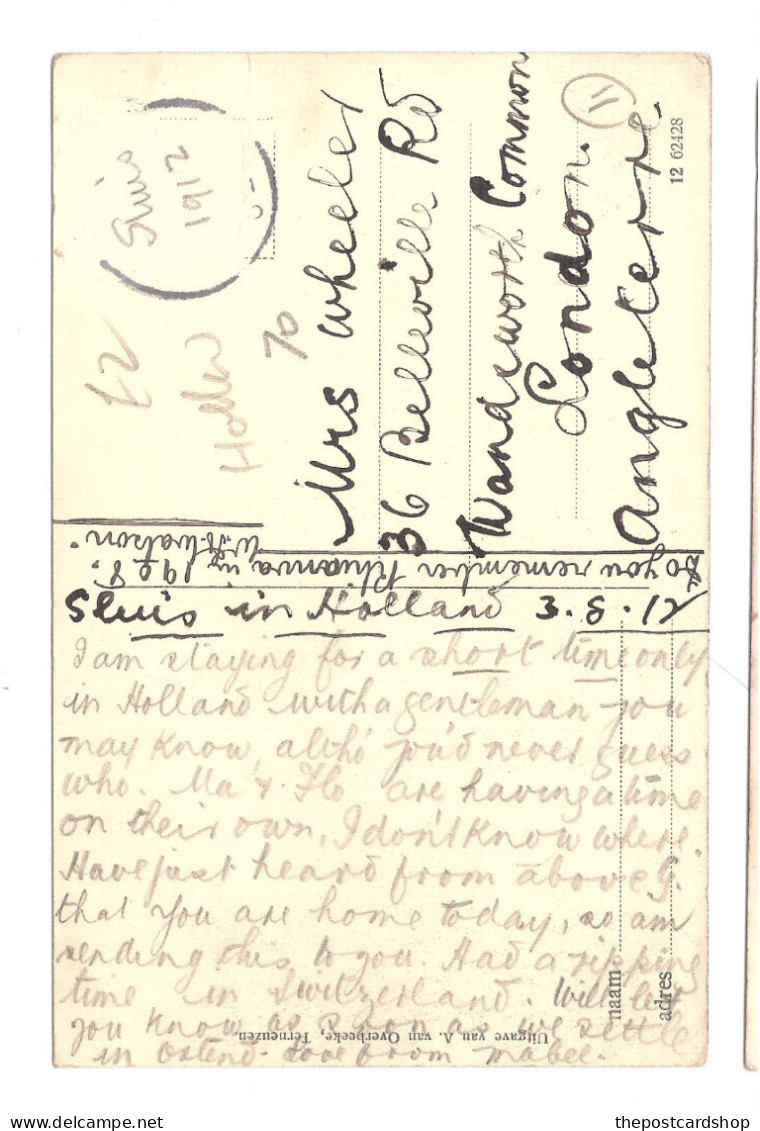 Sluis
1912
£2
Holland
To
Mrs Wheeler
36 Belleville Rd
Wandsworth Common
London.
Angleterre
11
12 62428
Do you remember in 1908.
W.H. Watson.
Sluis in Holland 3.8.12
I am staying for a short time only
in Holland with a gentleman you
may know, altho' you'd never guess
who. Ma & Flo are having a time
on their own, I don't know where.
Have just heard from above G.
that you are home today, so am
sending this to you. Had a ripping
time in Switzerland. Will let
you know as soon as we settle
in Ostend. Love from Mabel.
naam
adres
Uitgave van A. van Overbeeke, Terneuzen.
thepostcardshop